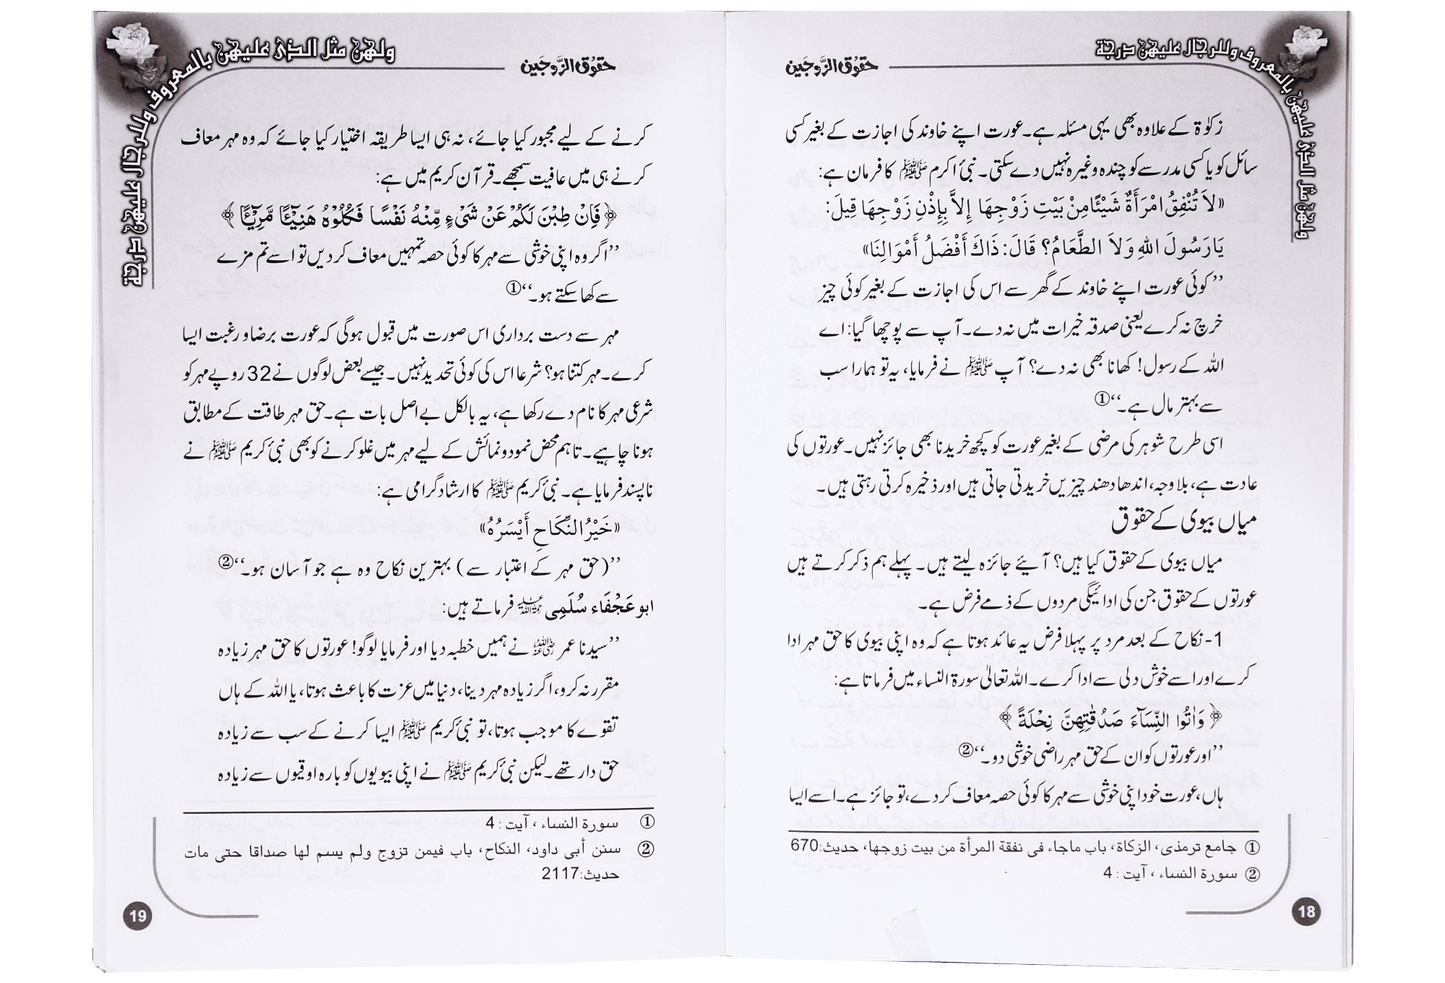 ولهن مثل الذی علیهن بالمعروف وللرجال علیهن درجة
حقوق الزَّوجین
زکوٰۃ کے علاوہ بھی یہی مسئلہ ہے۔ عورت اپنے خاوند کی اجازت کے بغیر کسی
سائل کو یا کسی مدرسے کو چندہ وغیرہ نہیں دے سکتی۔ نبیٔ اکرم ﷺ کا فرمان ہے:
«لاَ تُنْفِقُ امْرَأَةٌ شَيْئًا مِنْ بَيْتِ زَوْجِهَا إِلاَّ بِإِذْنِ زَوْجِهَا قِيلَ:
يَارَسُولَ اللهِ وَلاَ الطَّعَامُ؟ قَالَ: ذَاكَ أَفْضَلُ أَمْوَالِنَا»
’’کوئی عورت اپنے خاوند کے گھر سے اس کی اجازت کے بغیر کوئی چیز
خرچ نہ کرے یعنی صدقہ خیرات میں نہ دے۔ آپ سے پوچھا گیا: اے
اللہ کے رسول! کھانا بھی نہ دے؟ آپ ﷺ نے فرمایا، یہ تو ہمارا سب
سے بہتر مال ہے۔‘‘①
اسی طرح شوہر کی مرضی کے بغیر عورت کو کچھ خریدنا بھی جائز نہیں۔ عورتوں کی
عادت ہے، بلاوجہ، اندھا دھند چیزیں خریدتی جاتی ہیں اور ذخیرہ کرتی رہتی ہیں۔
میاں بیوی کے حقوق
میاں بیوی کے حقوق کیا ہیں؟ آیئے جائزہ لیتے ہیں۔ پہلے ہم ذکر کرتے ہیں
عورتوں کے حقوق جن کی ادائیگی مردوں کے ذمے فرض ہے۔
1- نکاح کے بعد مرد پر پہلا فرض یہ عائد ہوتا ہے کہ وہ اپنی بیوی کا حق مہر ادا
کرے اور اسے خوش دلی سے ادا کرے۔ اللہ تعالیٰ سورۃ النساء میں فرماتا ہے:
﴿ وَاٰتُوا النِّسَآءَ صَدُقٰتِهِنَّ نِحْلَةً ﴾
’’اور عورتوں کو ان کے حق مہر راضی خوشی دو۔‘‘②
ہاں، عورت خود اپنی خوشی سے مہر کا کوئی حصہ معاف کر دے، تو جائز ہے۔ اسے ایسا
① جامع ترمذی، الزکاة، باب ماجاء فی نفقة المرأة من بیت زوجها، حدیث:670
② سورة النساء، آیت: 4
18
ولهن مثل الذی علیهن بالمعروف وللرجال علیهن درجة
حقوق الزَّوجین
کرنے کے لیے مجبور کیا جائے، نہ ہی ایسا طریقہ اختیار کیا جائے کہ وہ مہر معاف
کرنے ہی میں عافیت سمجھے۔ قرآن کریم میں ہے:
﴿ فَاِنْ طِبْنَ لَكُمْ عَنْ شَیْءٍ مِّنْهُ نَفْسًا فَكُلُوْهُ هَنِیْٓئًا مَّرِیْٓئًا ﴾
’’اگر وہ اپنی خوشی سے مہر کا کوئی حصہ تمہیں معاف کر دیں تو اسے تم مزے
سے کھا سکتے ہو۔‘‘①
مہر سے دست برداری اس صورت میں قبول ہوگی کہ عورت برضا و رغبت ایسا
کرے۔ مہر کتنا ہو؟ شرعا اس کی کوئی تحدید نہیں۔ جیسے بعض لوگوں نے 32 روپے مہر کو
شرعی مہر کا نام دے رکھا ہے، یہ بالکل بے اصل بات ہے۔ حق مہر طاقت کے مطابق
ہونا چاہیے۔ تاہم محض نمود و نمائش کے لیے مہر میں غلو کرنے کو بھی نبیٔ کریم ﷺ نے
ناپسند فرمایا ہے۔ نبیٔ کریم ﷺ کا ارشاد گرامی ہے:
«خَيْرُ النِّكَاحِ أَيْسَرُهُ»
’’(حق مہر کے اعتبار سے) بہترین نکاح وہ ہے جو آسان ہو۔‘‘②
ابو عَجْفَاء سُلَمِی رحمہ اللہ فرماتے ہیں:
’’سیدنا عمر رضی اللہ عنہ نے ہمیں خطبہ دیا اور فرمایا لوگو! عورتوں کا حق مہر زیادہ
مقرر نہ کرو، اگر زیادہ مہر دینا، دنیا میں عزت کا باعث ہوتا، یا اللہ کے ہاں
تقوے کا موجب ہوتا، تو نبیٔ کریم ﷺ ایسا کرنے کے سب سے زیادہ
حق دار تھے۔ لیکن نبیٔ کریم ﷺ نے اپنی بیویوں کو بارہ اوقیوں سے زیادہ
① سورة النساء، آیت: 4
② سنن أبی داود، النکاح، باب فیمن تزوج ولم یسم لها صداقا حتی مات
حدیث:2117
19